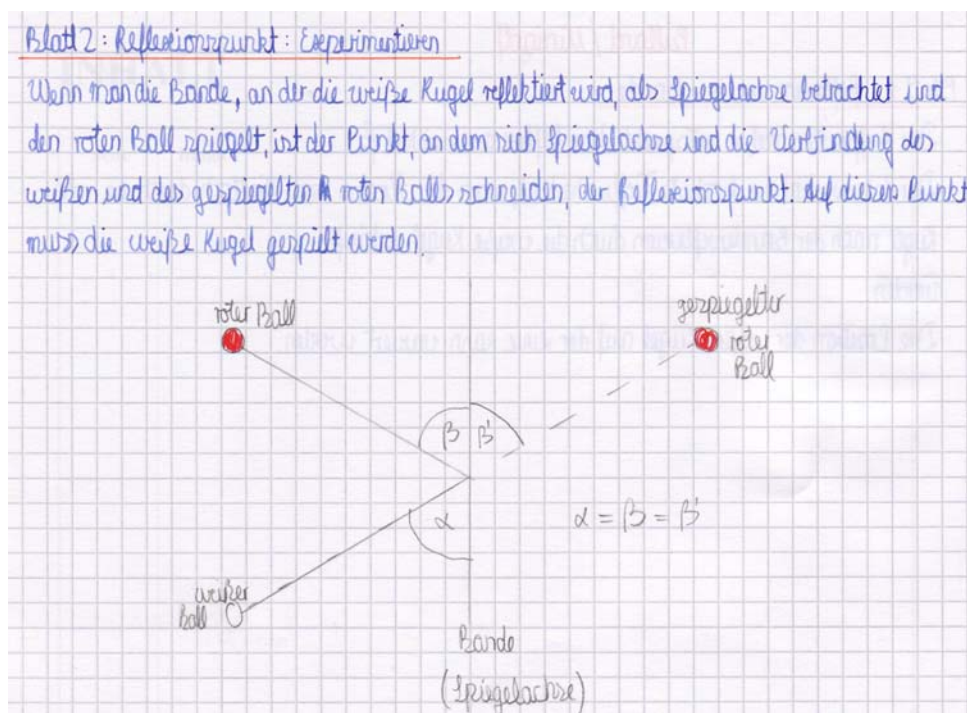 Blatt 2: Reflexionspunkt: Experimentieren
Wenn man die Bande, an der die weiße Kugel reflektiert wird, als Spiegelachse betrachtet und
den roten Ball spiegelt, ist der Punkt, an dem sich Spiegelachse und die Verbindung des
weißen und des gespiegelten roten Balls schneiden, der Reflexionspunkt. Auf diesen Punkt
muss die weiße Kugel gespielt werden.
roter Ball
gespiegelter
roter
Ball
β β'
α
α = β = β'
weißer
Ball
Bande
(Spiegelachse)